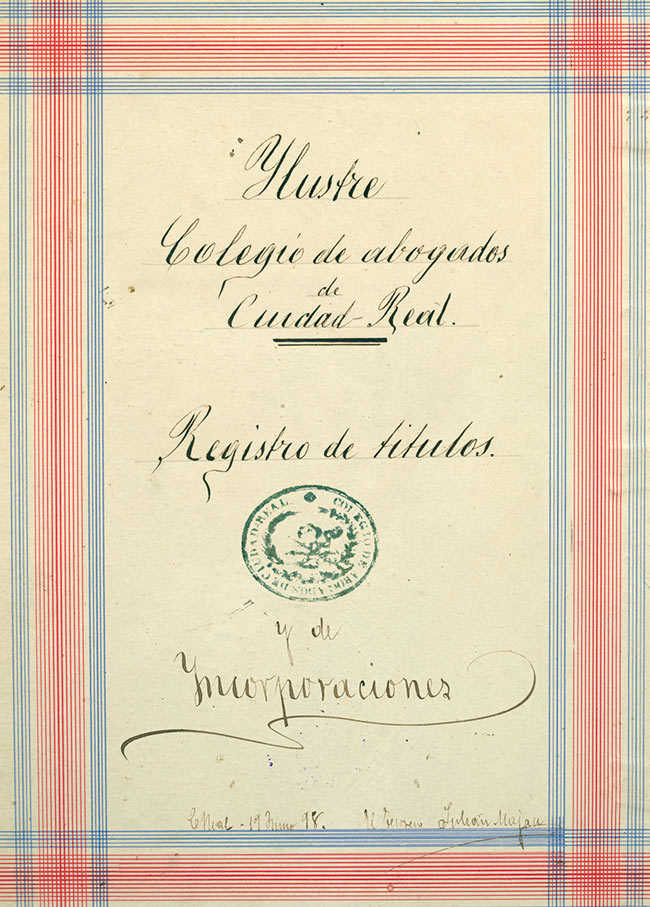 Ylustre
Colegio de abogados
de
Ciudad-Real.
Registro de titulos.
COLEGIO DE ABOGADOS DE CIUDAD-REAL
y de
Yncorporaciones
C Real - 17 98. El Julián